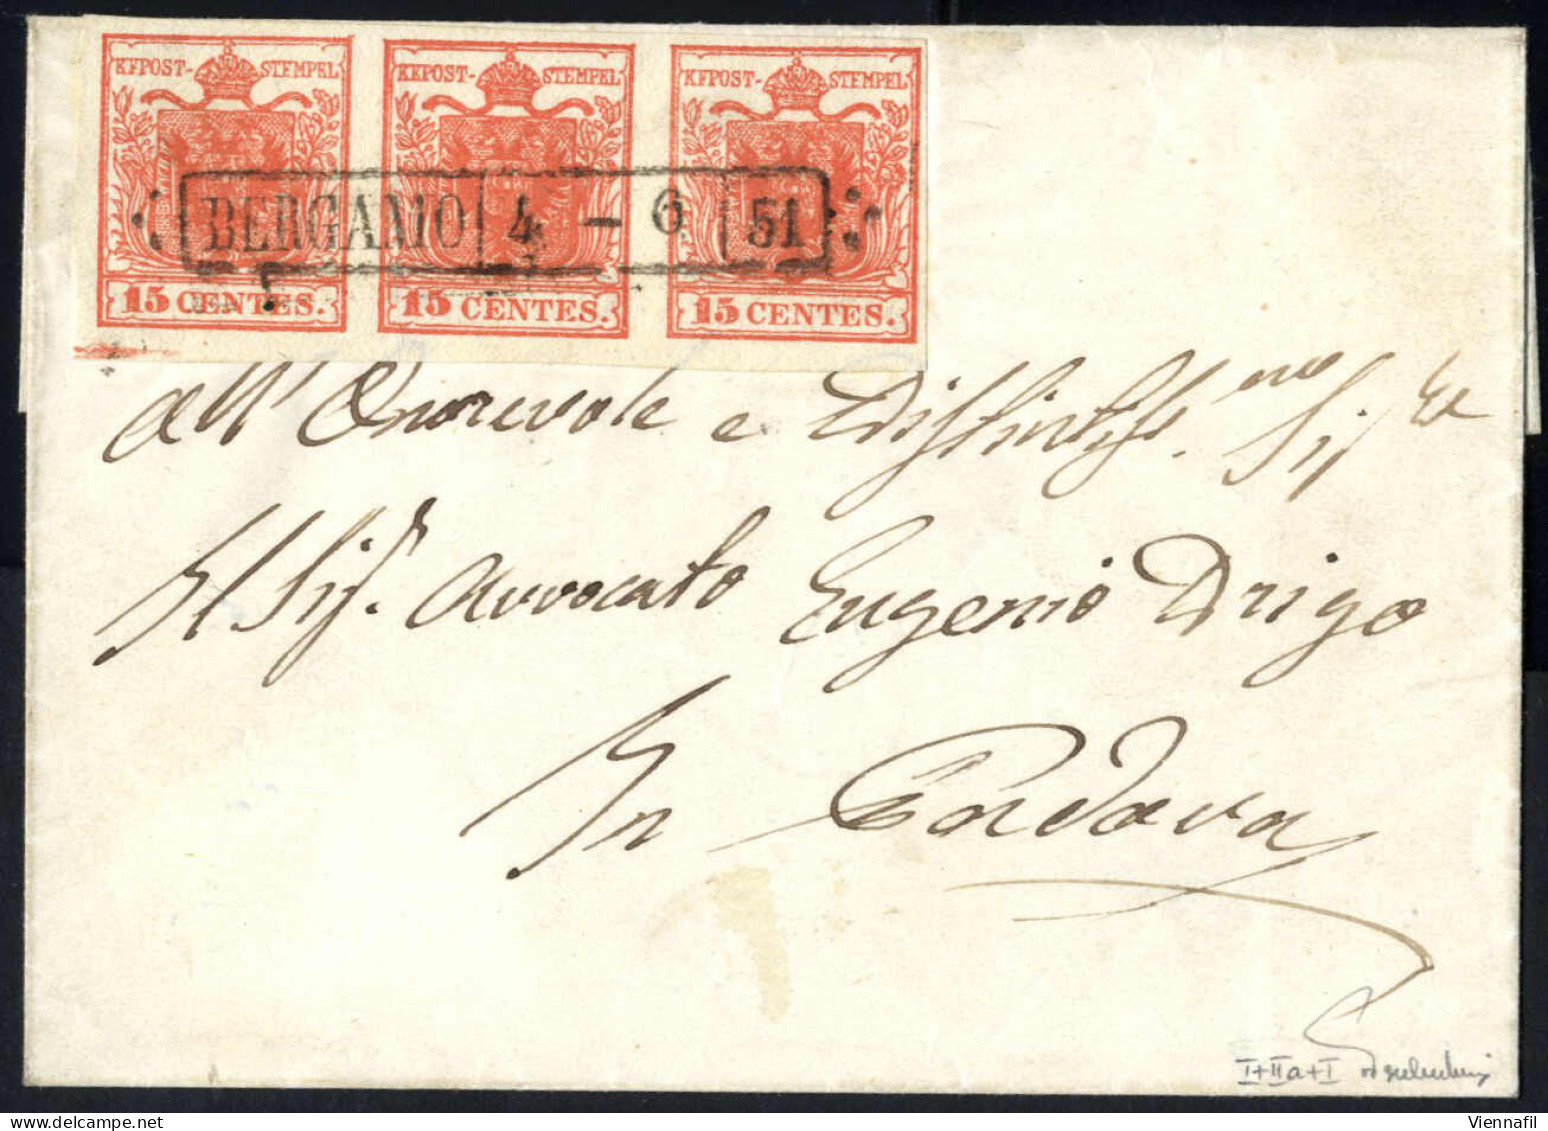 KKPOST- STEMPEL KKPOST- STEMPEL KKPOST- STEMPEL
BERGAMO 4 - 6 51
15 CENTES. 15 CENTES. 15 CENTES.
all' Onorevole e Distintiss.mo Sig.re
Il Sig.r Avvocato Eugenio Drigo
In Padova
I+IIa+I
Viennafil